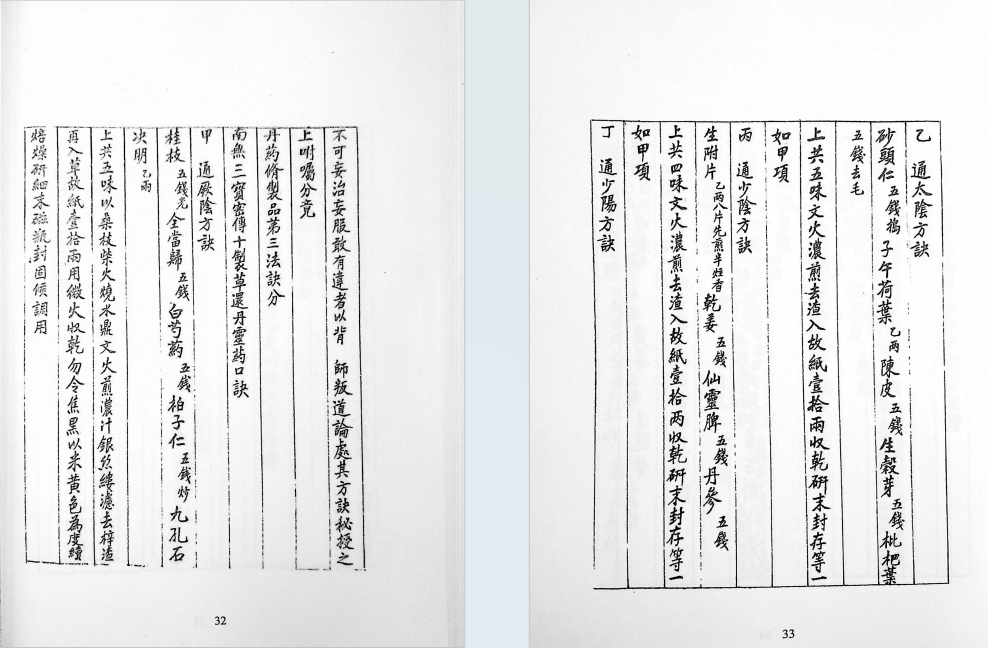 不可妄治妄服敢有違者以背 師叛道論處其方訣秘授之
上咐囑分竟
丹药脩製品第三法訣分
南無三寶密傳十製草還丹靈药口訣
甲 通厥陰方訣
桂枝 五錢羌 全當歸 五錢 白芍药 五錢 柏子仁 五錢炒 九孔石
决明 乙兩
上共五味以桑枝柴火燒水鼎文火煎濃汁銀丝縷濾去梓渣
再入草故紙壹拾兩用微火収乾勿令焦黑以米黄色為度續
焙燥研細末磁瓶封固候調用
32
乙 通太陰方訣
砂頭仁 五錢搗 子午荷葉 乙两 陳皮 五錢 生穀芽 五錢 枇杷葉
五錢去毛
上共五味文火濃煎去渣入故紙壹拾兩収乾研末封存等一
如甲項
丙 通少陰方訣
生附片 乙两八片先煎半炷香 乾姜 五錢 仙靈脾 五錢 丹參 五錢
上共四味文火濃煎去渣入故紙壹拾两収乾研末封存等一
如甲項
丁 通少陽方訣
33